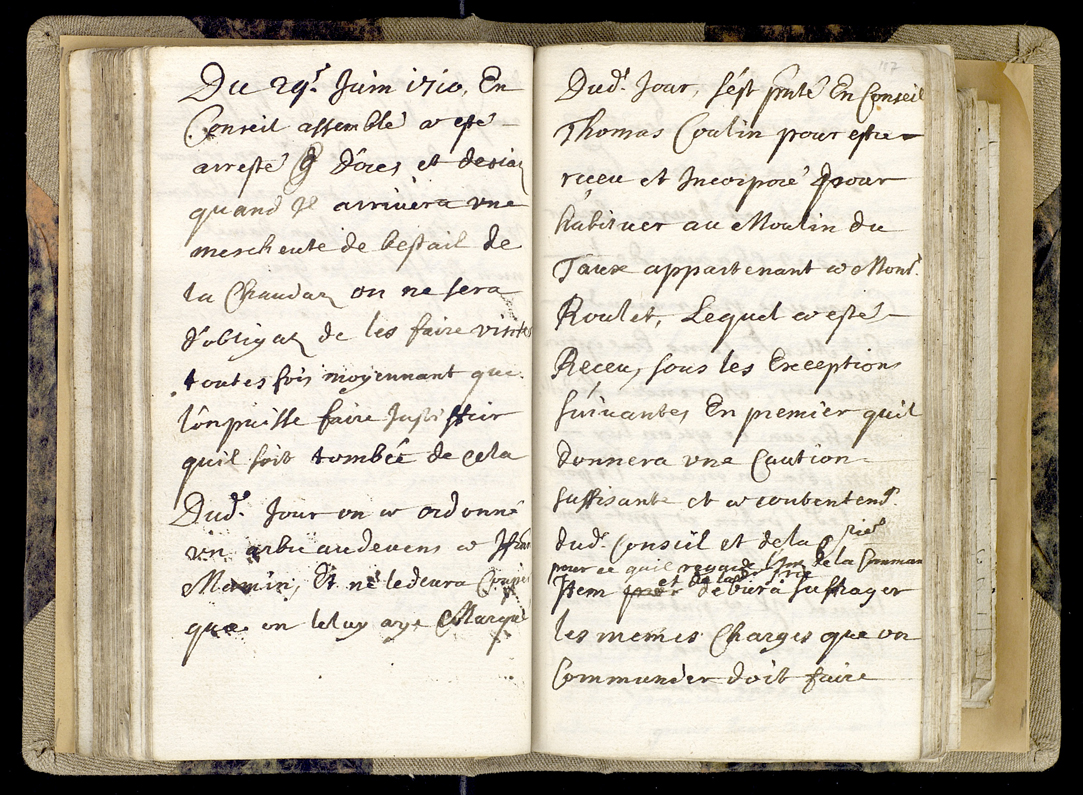 Du 29.e Juin 1710, En
Conseil assemblé a esté
arresté q d'ores et desia
quand Il arrivera une
mescheute de bestail de
la Chaudaz on ne sera
d'obligaz de les faire visites
toutes fois moyennant que
l'on puisse faire Justiffier
quil soit tombée de cela
Dud.t Jour on a ordonné
un arbre audevens a
Mamin, Et ne ledevra Couper
que on leluy aye Marqué
117
Dud.t Jour, s'est pnté En Conseil
Thomas Coulin pour estre
receu et Incorporé pour
habituer au Moulin du
Taux appartenant a Mons.r
Roulet, Lequel a esté
Receu, sous les Exceptions
suivantes, En premier quil
donnera une Caution
suffisante et a contentem.t
dud.t Conseil et de la
pour ce quil regarde de la Commun
et de lad.
Item devura suffrager
les memes Charges que un
Communier doit faire